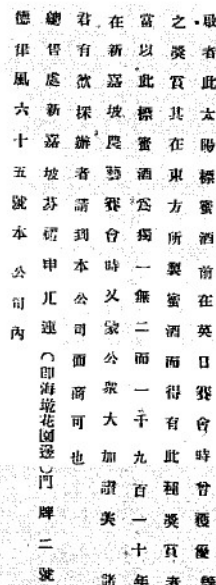 啟者此太陽標蜜酒前在英日賽會時曾獲優等
之獎賞其在東方所製蜜酒而得有此種獎賞者
當以此標蜜酒為獨一無二而一千九百一十年
在新嘉坡農藝賽會時又蒙公眾大加讚美 諸
君有欲採辦者請到本公司面商可也
總督處新嘉坡芬禮申爪連(即海墘花園邊)門牌二號
德律風六十五號本公司內